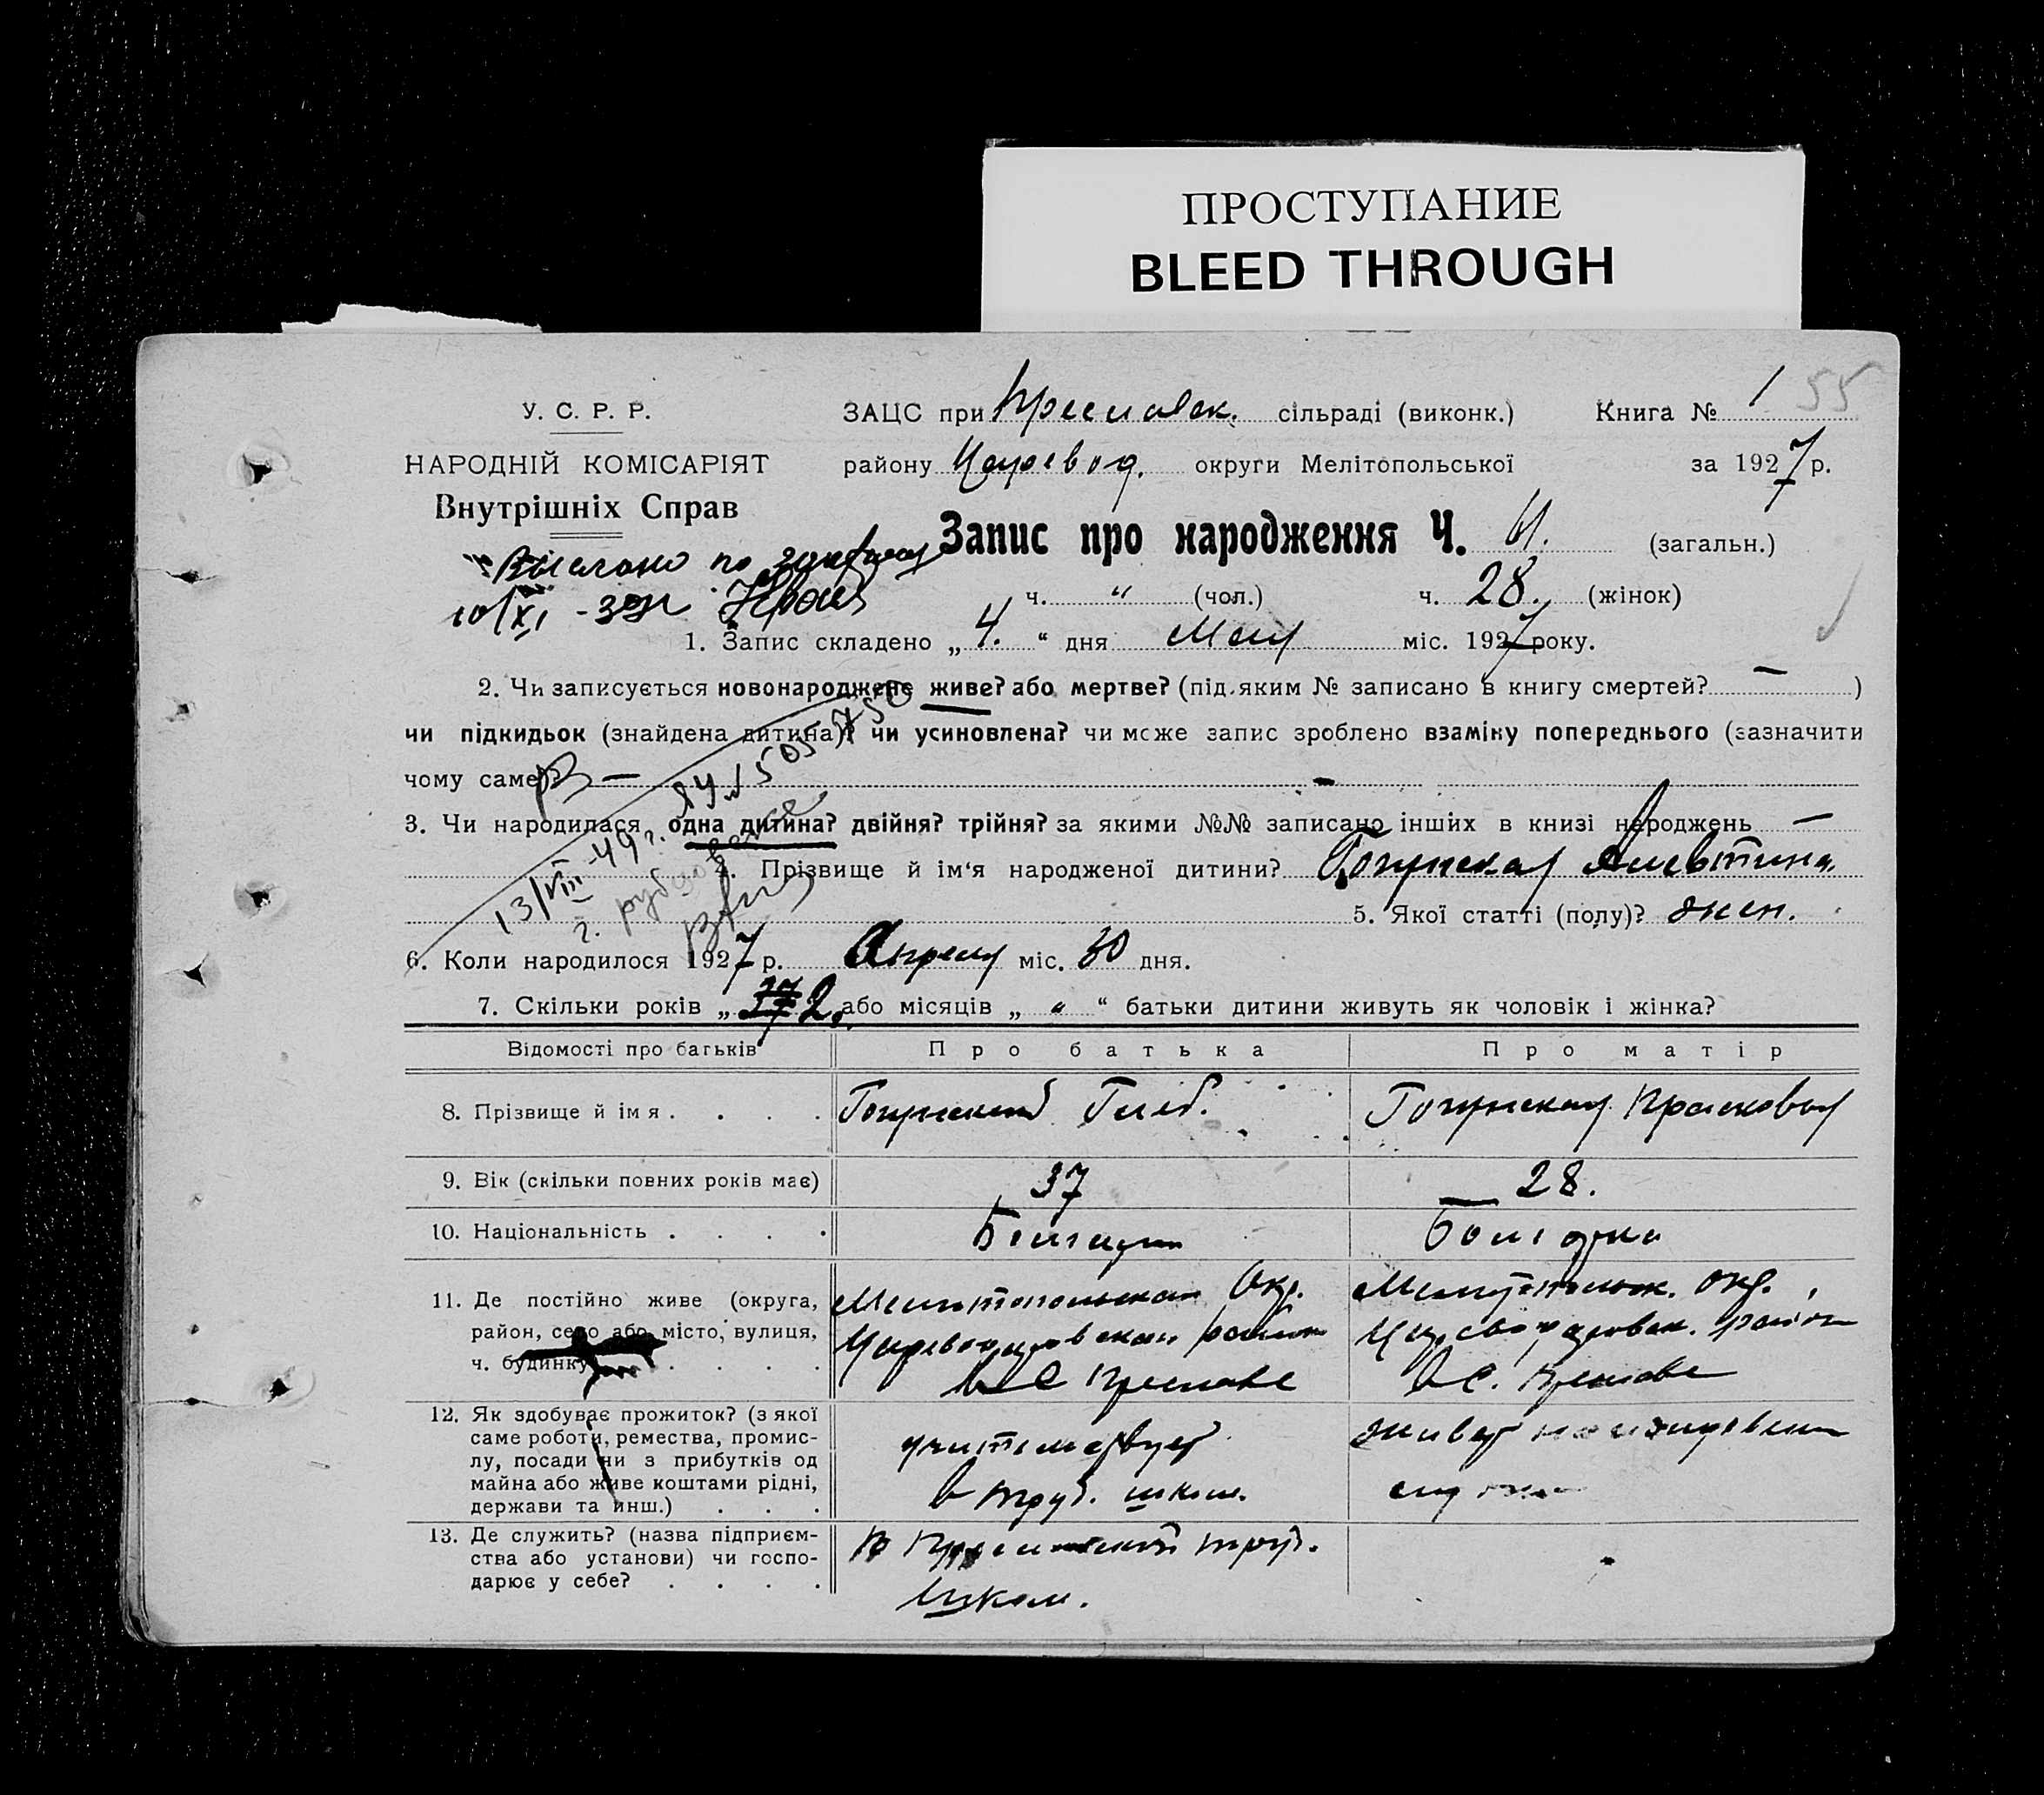 ПРОСТУПАНИЕ
BLEED THROUGH
У. С. Р. Р.
ЗАЦС при Преславск. сільраді (виконк.)
Книга № 1 55
НАРОДНІЙ КОМІСАРІЯТ
району Царевод. округи Мелітопольської
за 1927 р.
Внутрішніх Справ
Запис про народження Ч. 61. (загальн.)
Выслано по
10/XI - 39г
ч. " (чол.) ч. 28. (жінок)
1. Запис складено „ 4. " дня Мая міс. 1927 року.
2. Чи записується новонароджене живе? або мертве? (під яким № записано в книгу смертей? — )
чи підкидьок (знайдена дитина)? чи усиновлена? чи може запис зроблено взаміну попереднього (зазначити
чому саме)? — -
3. Чи народилася одна дитина? двійня? трійня? за якими №№ записано інших в книзі народжень —
13/VIII-49г.
4. Прізвище й ім'я народженої дитини? Алевтина.
5. Якої статті (полу)? жен.
6. Коли народилося 1927 р. Апреля міс. 30 дня.
7. Скільки років „ 2 або місяців „ " " батьки дитини живуть як чоловік і жінка?
Відомості про батьків
Про батька
Про матір
8. Прізвище й ім я . . . .
Глеб.
Прасковья
9. Вік (скільки повних років має)
37
28.
10. Національність . . . .
Болгарин
Болгарка
11. Де постійно живе (округа,
район, село або місто, вулиця,
ч. будинку . . . .
Мелитопольская Окр.
Царевод райoн
в С Преславе
Мелитопольск. окр.,
район
в С. Преславе
12. Як здобуває прожиток? (з якої
саме роботи, ремества, промис-
лу, посади чи з прибутків од
майна або живе коштами рідні,
держави та инш.) . . .
учительствует
в труд. школ.
живет на иждивении
13. Де служить? (назва підприєм-
ства або установи) чи госпо-
дарює у себе? . . . .
в Преславской труд.
школ.